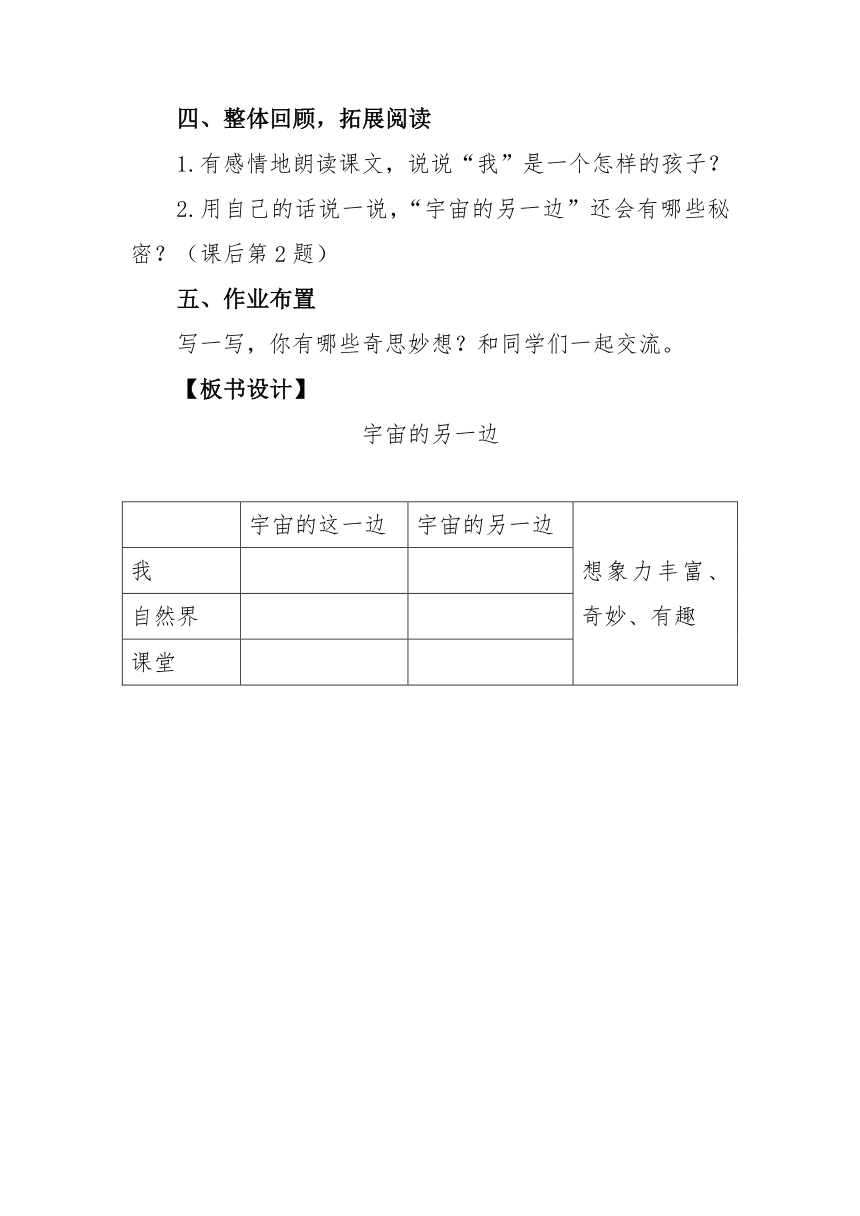 四、整体回顾，拓展阅读
1.有感情地朗读课文，说说“我”是一个怎样的孩子？
2.用自己的话说一说，“宇宙的另一边”还会有哪些秘
密？（课后第2题）
五、作业布置
写一写，你有哪些奇思妙想？和同学们一起交流。
【板书设计】
宇宙的另一边
宇宙的这一边 宇宙的另一边
我
自然界
课堂
想象力丰富、
奇妙、有趣